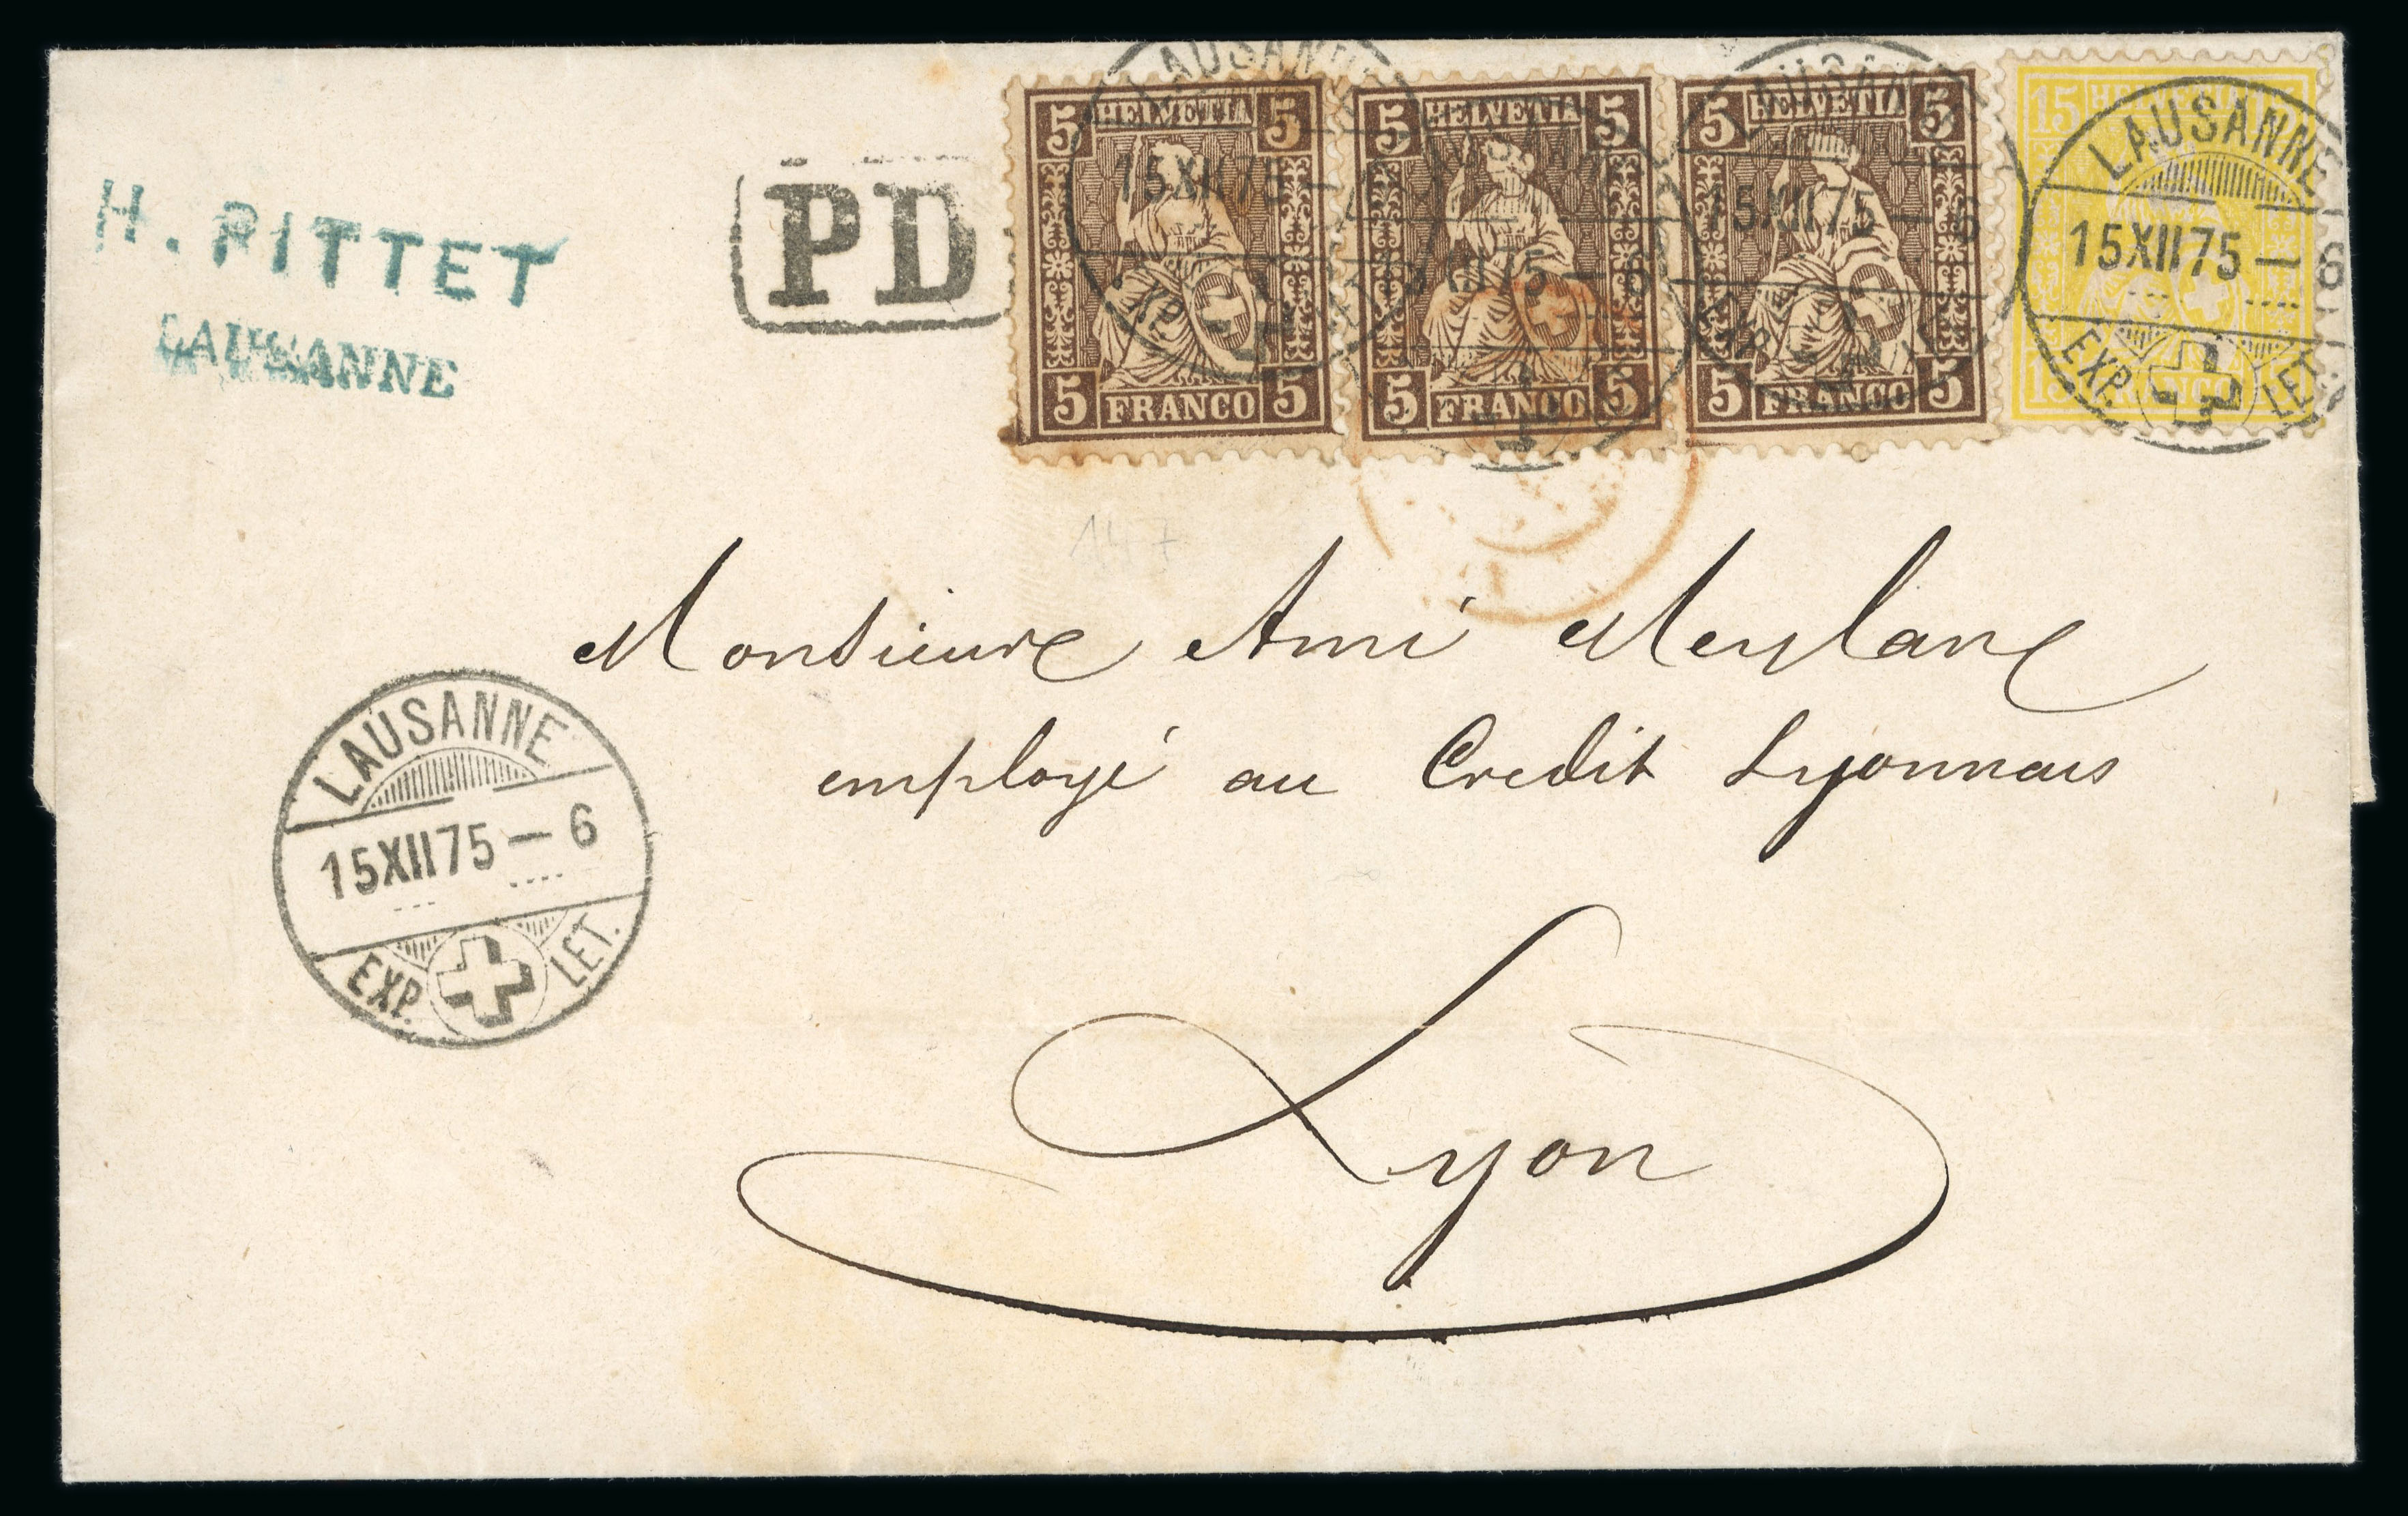 H. PITTET
LAUSANNE
PD
5 HELVETIA 5
5 FRANCO 5
5 HELVETIA 5
5 FRANCO 5
5 HELVETIA 5
5 FRANCO 5
15 HELVETIA 15
15 FRANCO 15
LAUSANNE
15XII75
LAUSANNE
15XII75 — 6
EXP. LET.
147
Monsieur Ami Meylan
employé au Credit Lyonnais
Lyon
LAUSANNE
15XII75 — 6
EXP. LET.